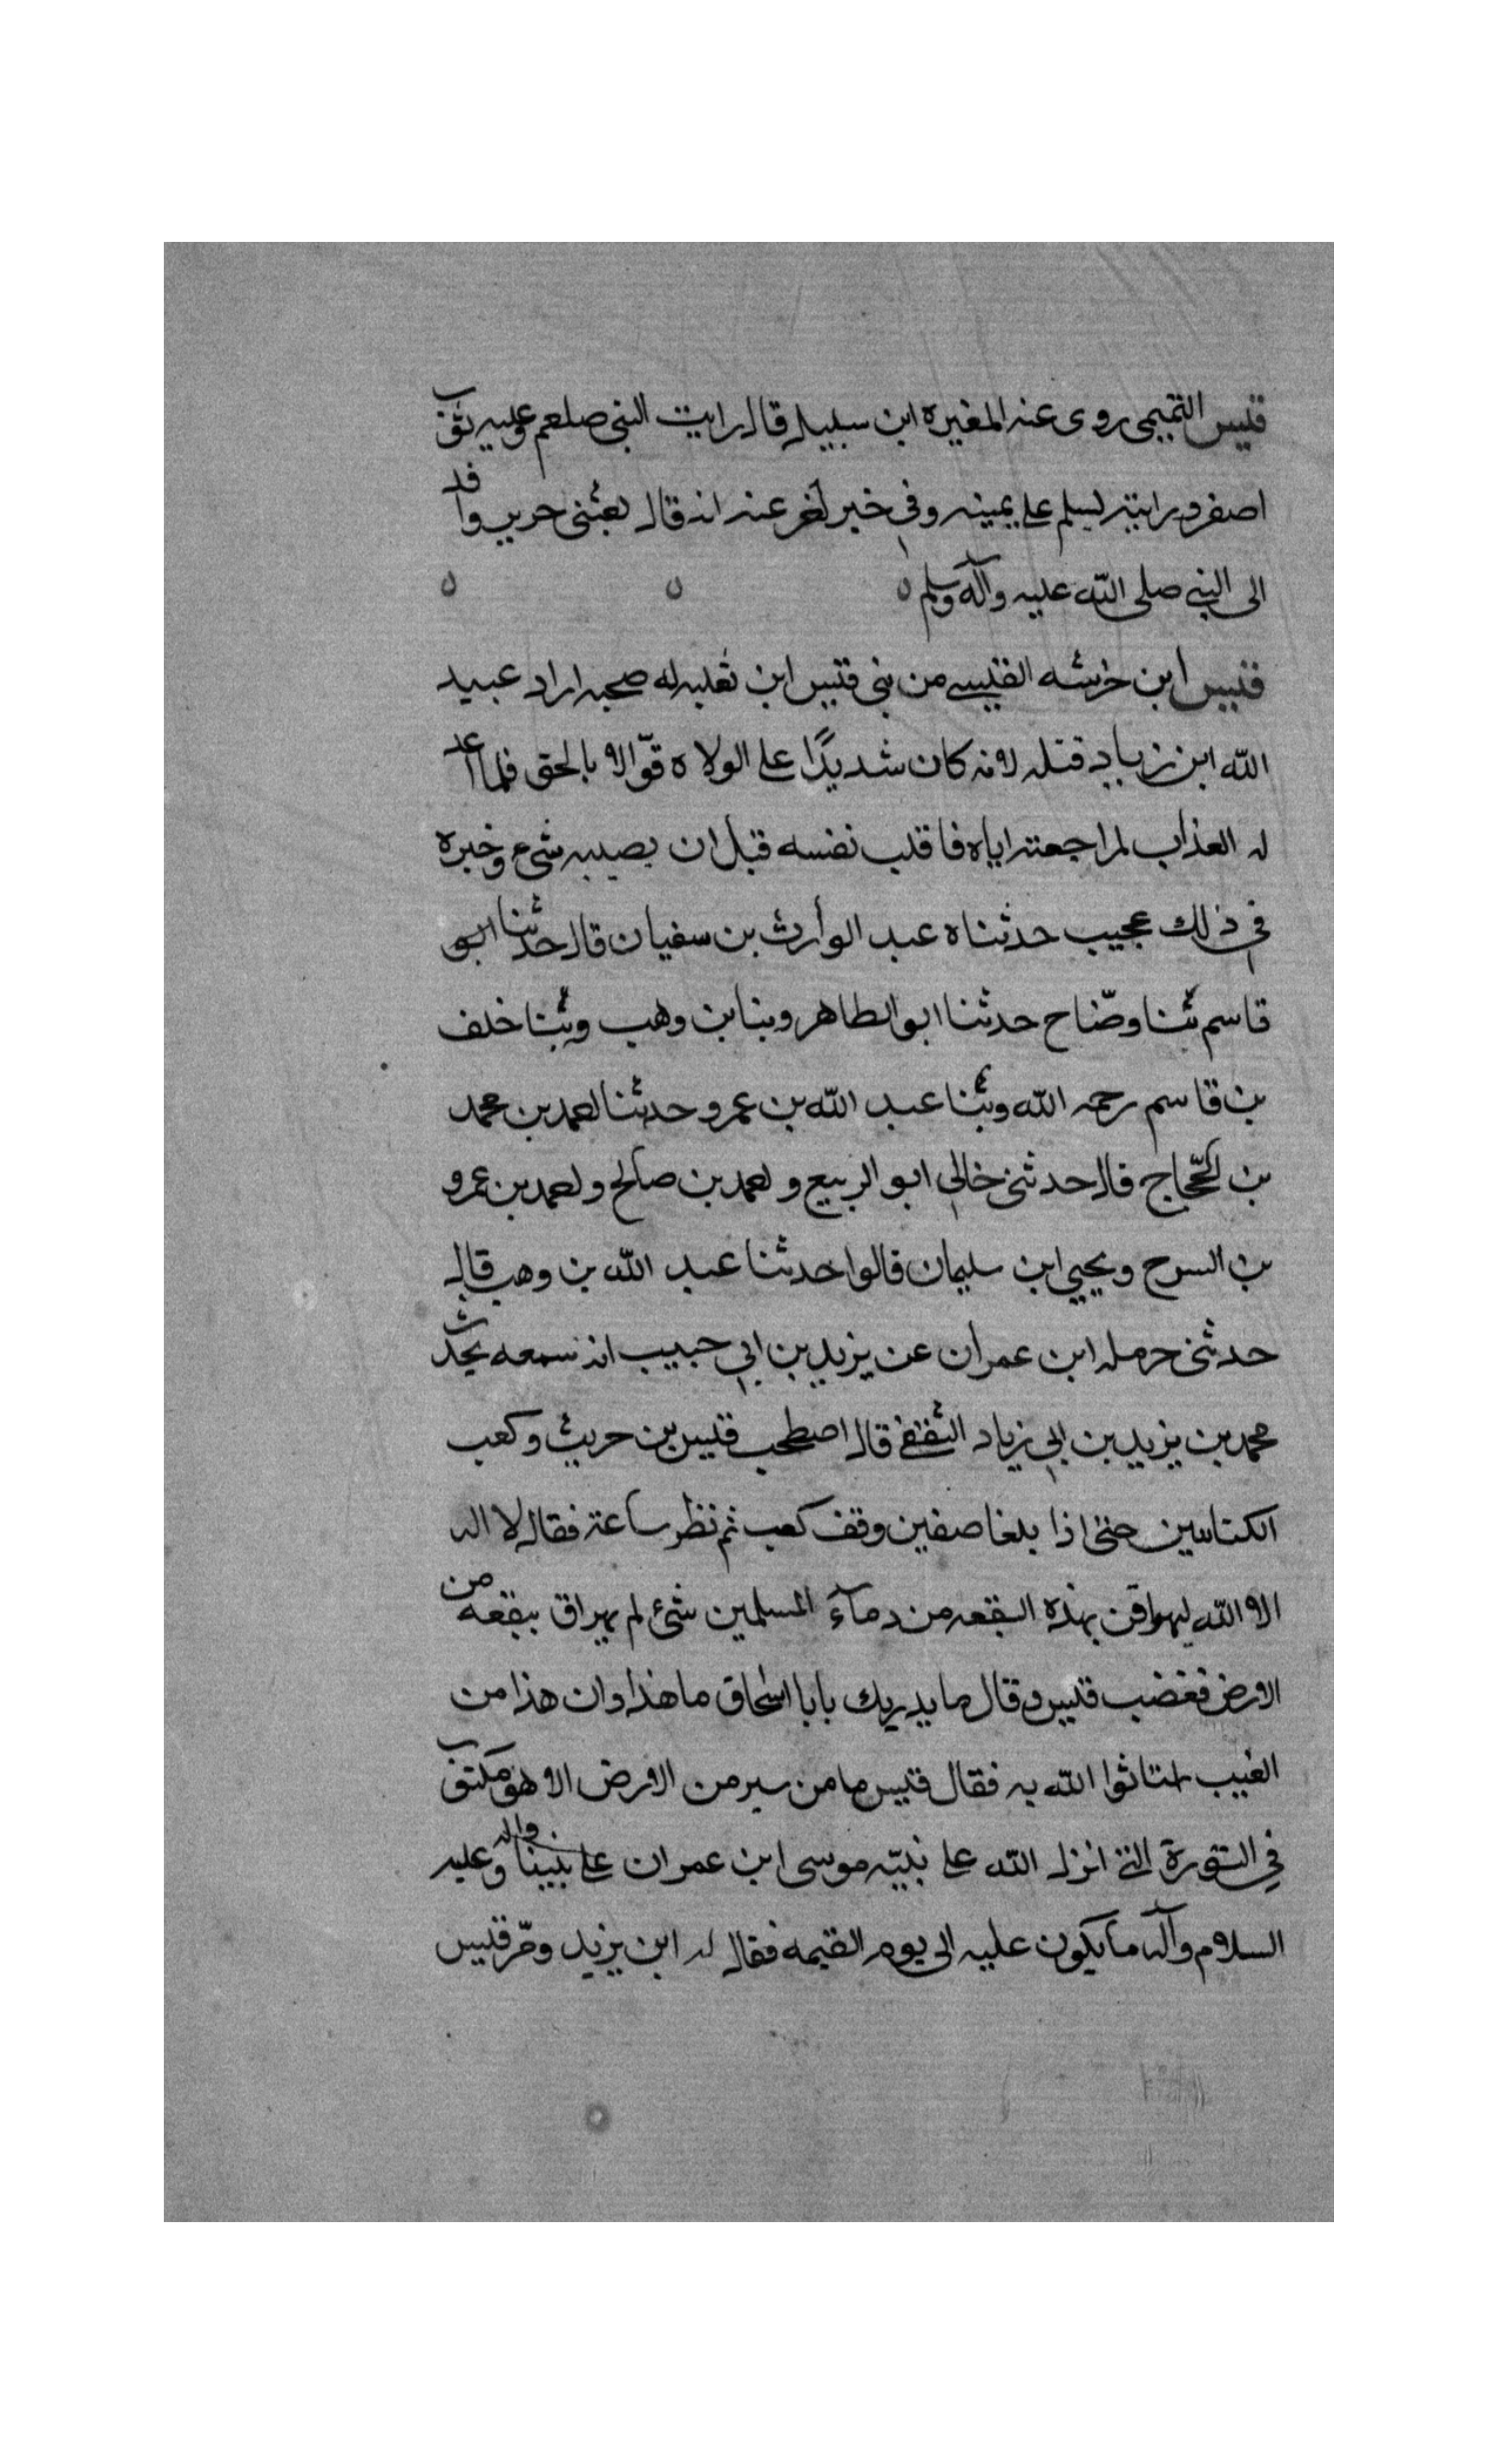 قيس التميمى روى عنه المغيره ابن سبيل قال رايت النبى صلعم وعليه ثوب
اصفر ورايته يسلم على يمينه وفي خبر لغر عنه انه قال بعثنى جرير وافد
الى النبي صلى الله عليه وآله وسلم
قيس ابن خرشه القيسى من بنى قيس ابن ثعلبه له صحبه اراد عبيد
الله ابن زياد قتله لانه كان شديدًا على الولاه قوّالا بالحق فلما اعد
له العذاب لمراجعته اياه فاقلب نفسه قبل ان يصيبه شيء وخبره
في ذلك عجيب حدثناه عبد الوارث بن سفيان قال حدثنا ابو
قاسم ثنا وضّاح حدثنا ابو الطاهر وبنا بن وهب وثنا خلف
بن قاسم رحمه الله وثنا عبد الله بن عمرو حدثنا لعمد بن محمد
بن لحجّاج قال حدثنى خالي ابو الربيع ولعمد بن صالح ولعمد بن عمرو
بن السرح ويحيى ابن سليمان قالوا حدثنا عبد الله بن وهب قال
حدثنى حرمله ابن عمران عن يزيد بن ابي حبيب انه سمعه يحدث
محمد بن يزيد بن ابي زياد الثقفى قال اصطحب قيس بن حريث وكعب
الكتابيين حتى اذا بلغا صفين وقف كعب ثم نظر ساعة فقال لا اله
الا الله ليهراقن بهذه البقعه من دمآء المسلمين شئ لم يهراق ببقعه من
الارض فغضب قيس وقال ما يدريك يابا اسحاق ما هذا وان هذا من
الغيب الله به فقال قيس ما من سير من الارض الا هو مكتوب
في التورة التى انزل الله على نبيّه موسى ابن عمران على نبينا واله وعليه
السلام وآله ما يكون عليه الى يوم القيمه فقال له ابن يزيد ومر قيس